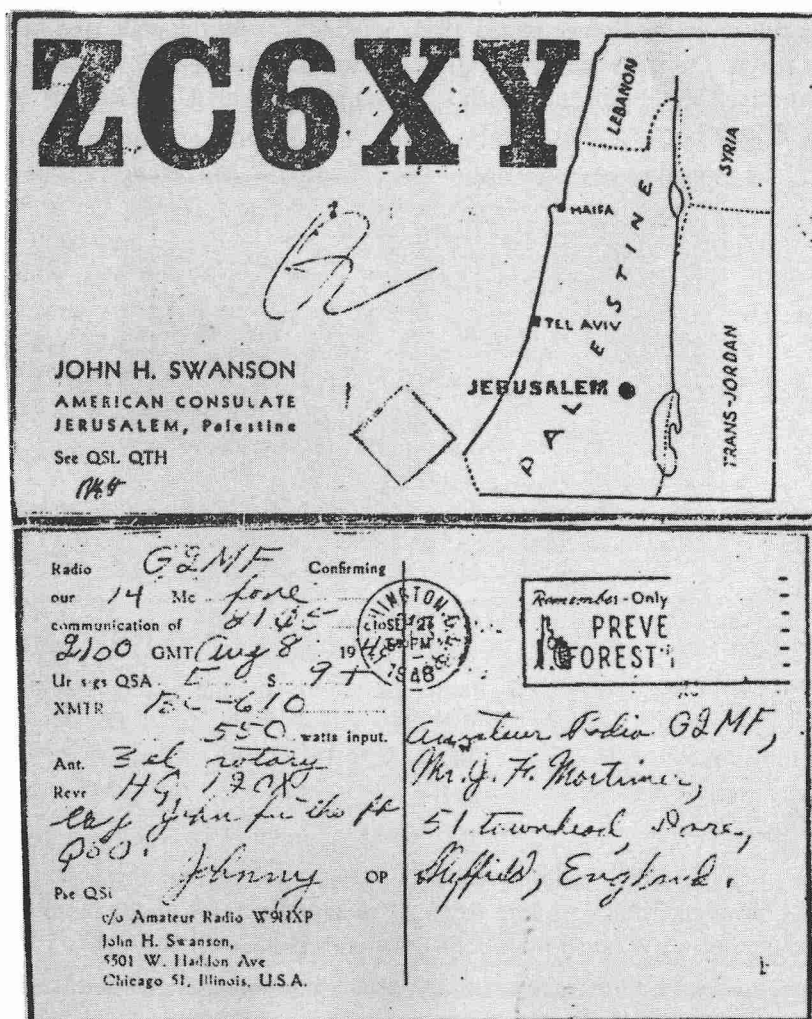 ZC6XY
LEBANON
SYRIA
HAIFA
TEL AVIV
PALESTINE
JERUSALEM
TRANS-JORDAN
JOHN H. SWANSON
AMERICAN CONSULATE
JERUSALEM, Palestine
See QSL QTH
Radio G2MF Confirming
our 14 Mc fone
communication of
2100 GMT Aug 8 194
Ur sigs QSA 5 S 9+
XMTR BC-610
550 watts input.
Ant. 3 el rotary
Revr HQ 120X
for the
QSO.
Johnny OP
Pse QSL
c/o Amateur Radio W9HXP
John H. Swanson,
5501 W. Haddon Ave
Chicago 51, Illinois, U.S.A.
1948
Remember-Only
PREVE
FOREST
Amateur Radio G2MF,
Mr. J. F. Mortimer,
51 townhead, Dore,
Sheffield, England.